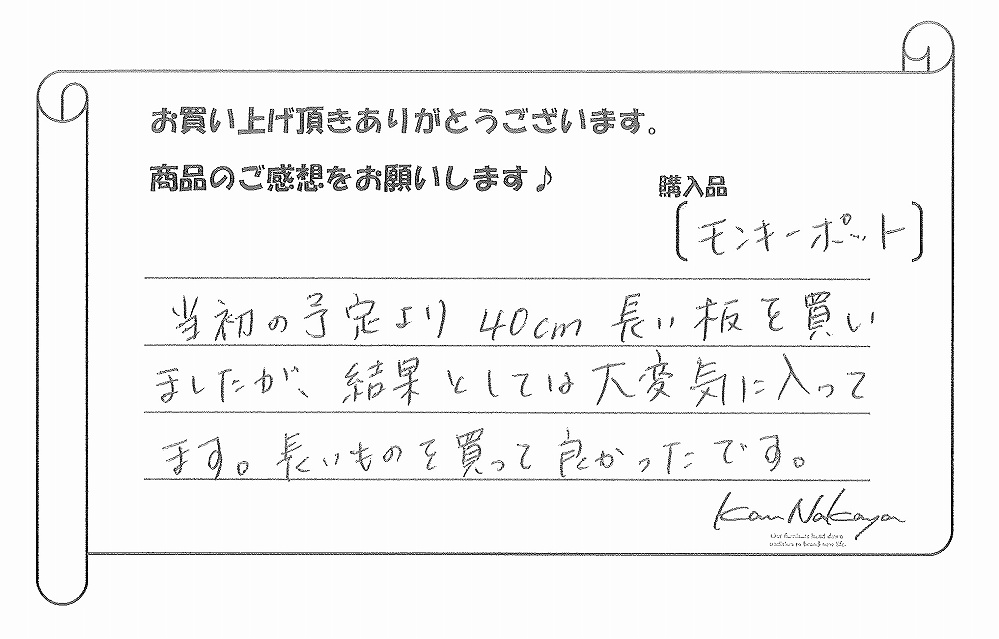 お買い上げ頂きありがとうございます。
商品のご感想をお願いします♪
購入品
[モンキーポット]
当初の予定より 40cm 長い板を買い
ましたが、結果としては大変気に入って
ます。長いものを買って良かったです。
Kan Nakaya
Our furniture hand down
tradition to brand-new life.